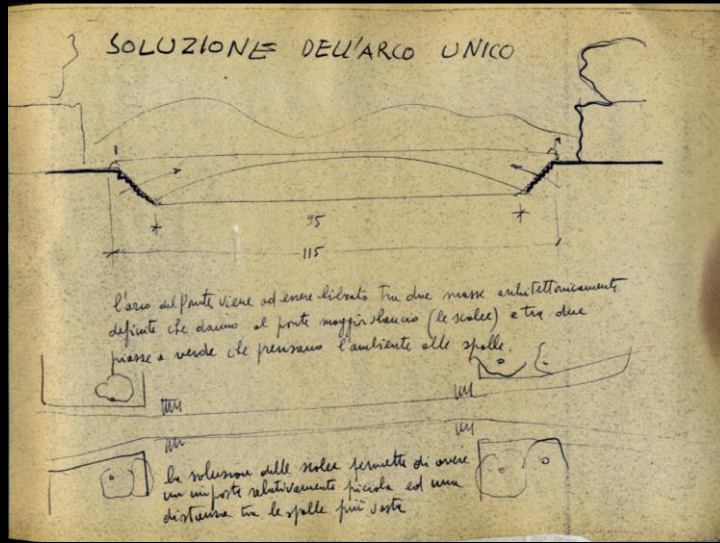 SOLUZIONE DELL'ARCO UNICO
95
115
l'arco del ponte viene ad essere librato tra due masse architettonicamente
definite che danno al ponte maggior slancio (le scalee) e tra due
masse a verde che precisano l'ambiente alle spalle.
la soluzione delle scalee permette di avere
un imposta relativamente piccola ed una
distanza tra le spalle più vasta